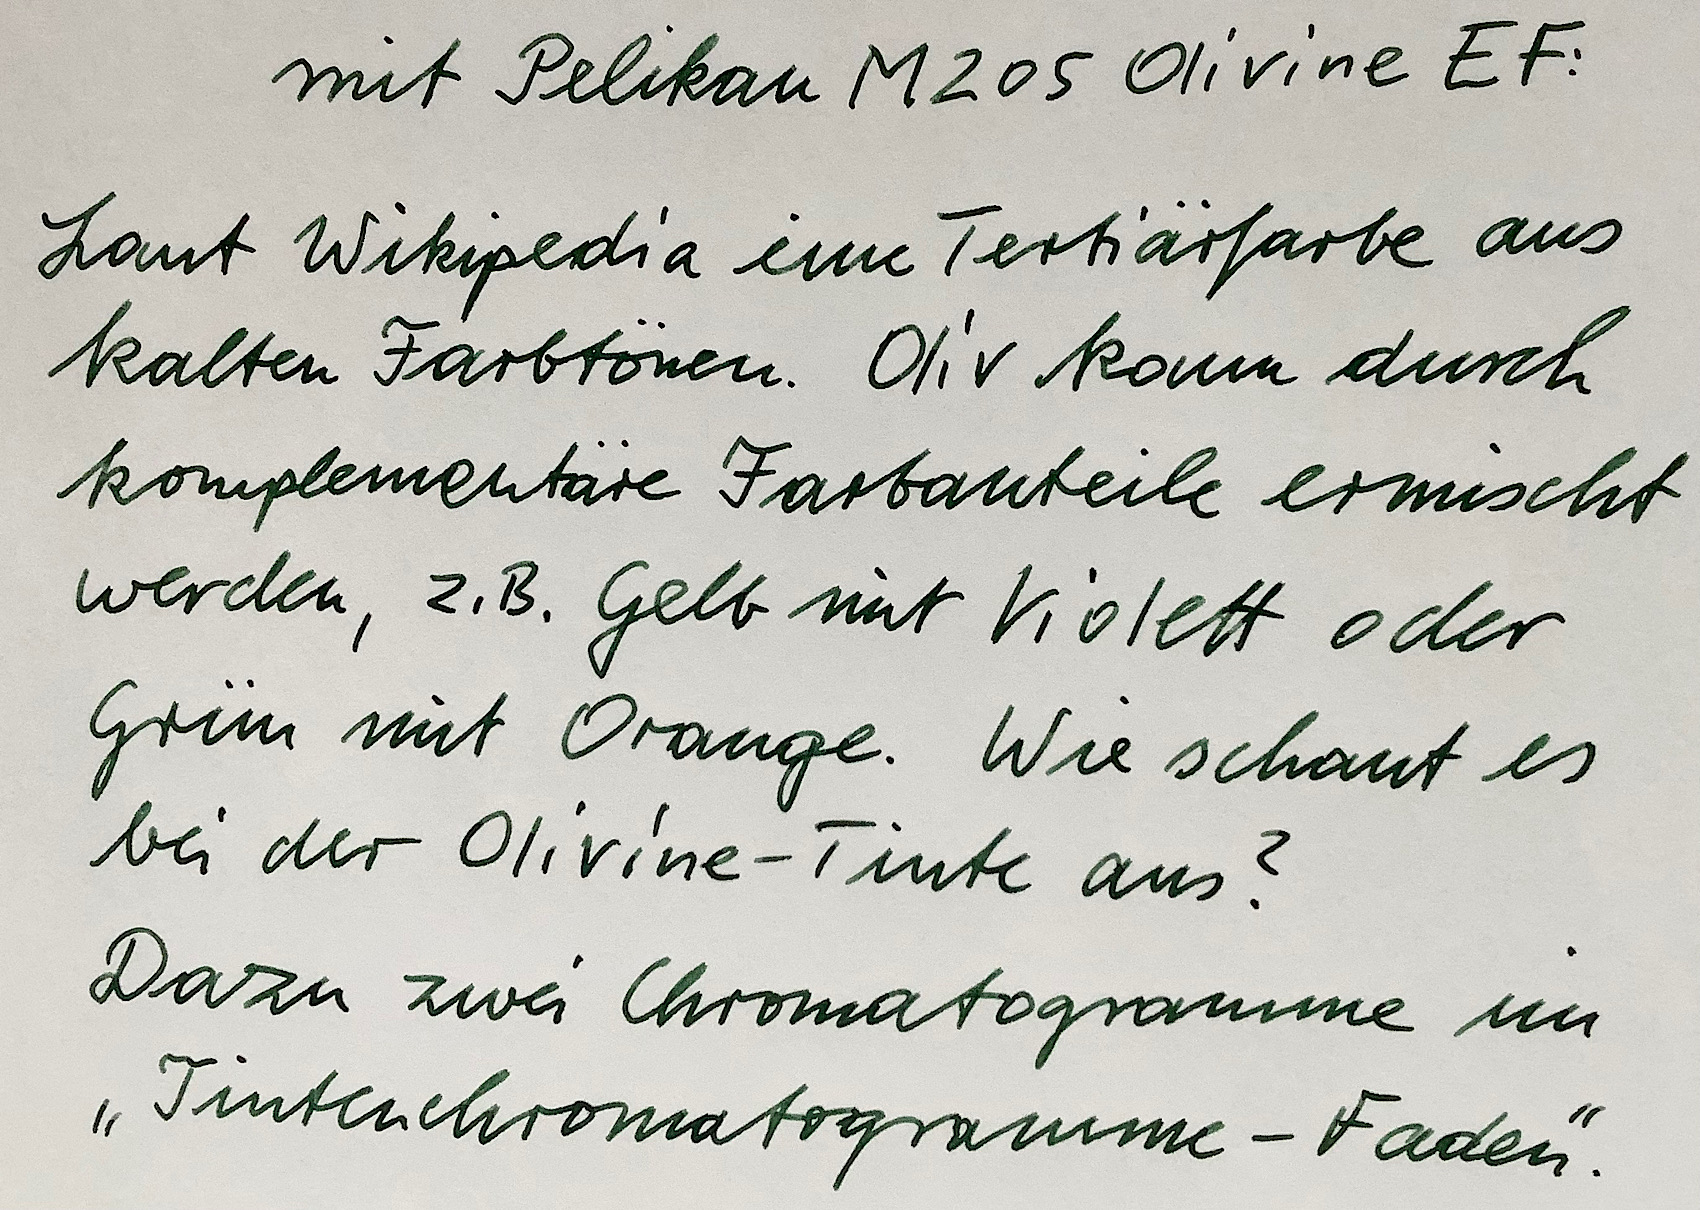 mit Pelikan M205 Olivine EF:
Laut Wikipedia eine Tertiärfarbe aus
kalten Farbtönen. Oliv kann durch
komplementäre Farbanteile ermischt
werden, z.B. Gelb mit Violett oder
Grün mit Orange. Wie schaut es
bei der Olivine-Tinte aus?
Dazu zwei Chromatogramme im
„Tintenchromatogramme-Faden".